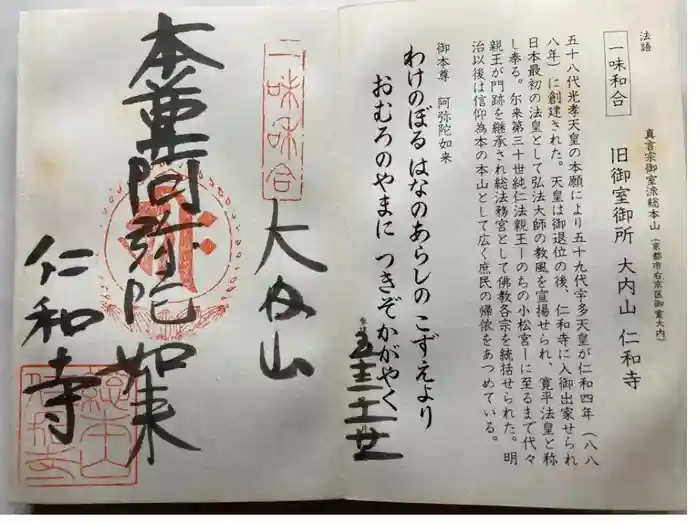 法語
一味和合
真言宗御室派総本山(京都市右京区御室大内)
旧御室御所 大内山 仁和寺
五十八代光孝天皇の本願により五十九代宇多天皇が仁和四年(八八
八年)に創建された。天皇は御退位の後、仁和寺に入御出家せられ
日本最初の法皇として弘法大師の教風を宣揚せられ、寛平法皇と称
し奉る。尓来第三十世純仁法親王ーのちの小松宮ーに至るまで代々
親王が門跡を継承され総法務宮として佛教各宗を統括せられた。明
治以後は信仰為本の本山として広く庶民の帰依をあつめている。
御本尊 阿弥陀如来
わけのぼる はなのあらしの こずえより
おむろのやまに つきぞかがやく
一味和合
大内山
本尊阿弥陀如来
仁和寺
総本山
仁和寺